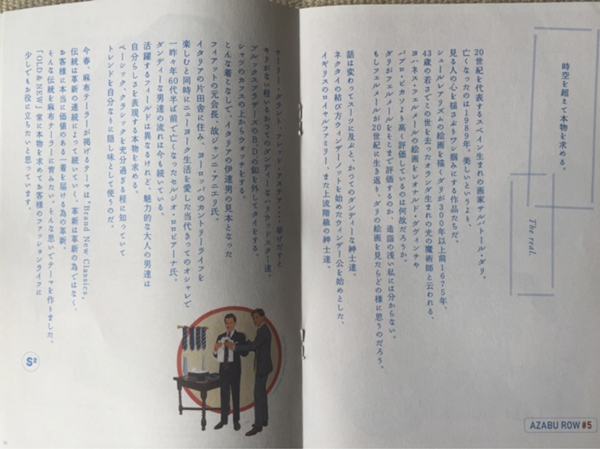 時空を超えて本物を求める。
The real.
20世紀を代表するスペイン生まれの画家サルバトール・ダリ。
亡くなったのは1989年。美しいというより、
見る人の心を揺さぶりつ掴みにする作品たちだ。
シュールレアリズムの絵画を描くダリが300年以上前1675年、
43歳の若さでこの世を去ったオランダ生まれの光の魔術師と云われる、
ヨハネス・フェルメールの絵画をレオナルド・ダヴィンチや
パブロ・ピカソより高く評価しているのは何故だろうか。
ダリがフェルメールをそこまで評価するのか、造詣の浅い私には分からない。
もしフェルメールが20世紀に生き返り、ダリの絵画を見たらどの様に思うのだろう。
話は変わってスーツに及ぶと、かつてのダンディな紳士達。
ネクタイの結び方ウィンザーノットを始めたウィンザー公を始めとした、
イギリスのロイヤルファミリー、また上流階級の紳士達。
ケーリー・グラント、フレッド・アステア・・・挙げだすと
キリがない程いるかつてのダンディなハリウッドスター達。
ブルックスブラザーズのB.Dの釦を外してタイをする。
シャツのカフスの上からウォッチをする。
こんな着こなしで、イタリアの伊達男の見本となった
フィアットの元会長、故ジャンニ・アニエリ氏。
イタリアの片田舎に住み、ヨーロッパのカントリーライフを
楽しむと同時にニューヨーク生活を愛した当代きってのオシャレで
一昨々年60代半ば前で亡くなったセルジオ・ロロピアーナ氏。
ダンディーな男達の流れは今も続いている。
活躍するフィールドは異なるけれど、魅力的な大人の男達は
自分らしさを表現する本物を求める。
ベーシック、クラシックを充分過ぎる程に知っていて
トレンドを自分なりに隠し味として使うのだ。
今春、麻布テーラーが掲げるテーマは"Brand New Classics"。
伝統は革新の連続によって続いていく、革新は革新の為ではなく、
お客様に本当に価値のある一着を届ける為の革新。
そんな伝統を麻布テーラーに育みたい。そんな思いでテーマを作りました。
「OLD & NEW」常に本物を求めてお客様のファッションライフに
少しでもお役に立ちたいと思っています。
S²
AZABU ROW #5